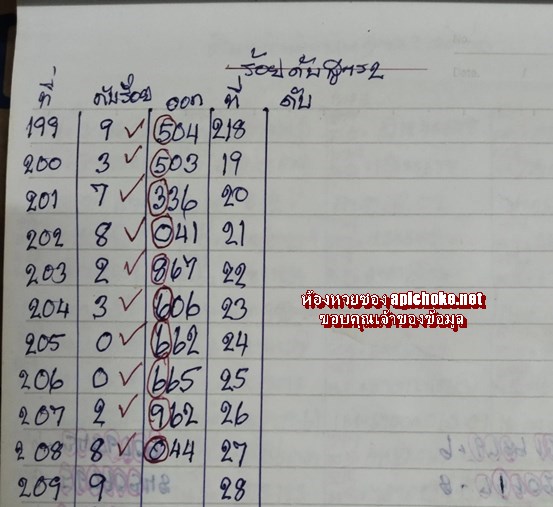 ร้อยดับสูตร2
ที่ ดับร้อย ออก ที่ ดับ
199 9 ✓ 504 218
200 3 ✓ 503 19
201 7 ✓ 336 20
202 8 ✓ 041 21
203 2 ✓ 867 22
204 3 ✓ 606 23
205 0 ✓ 662 24
206 0 ✓ 665 25
207 2 ✓ 962 26
208 8 ✓ 044 27
209 9 28
ห้องหวยซอง apichoke.net
ขอบคุณเจ้าของข้อมูล